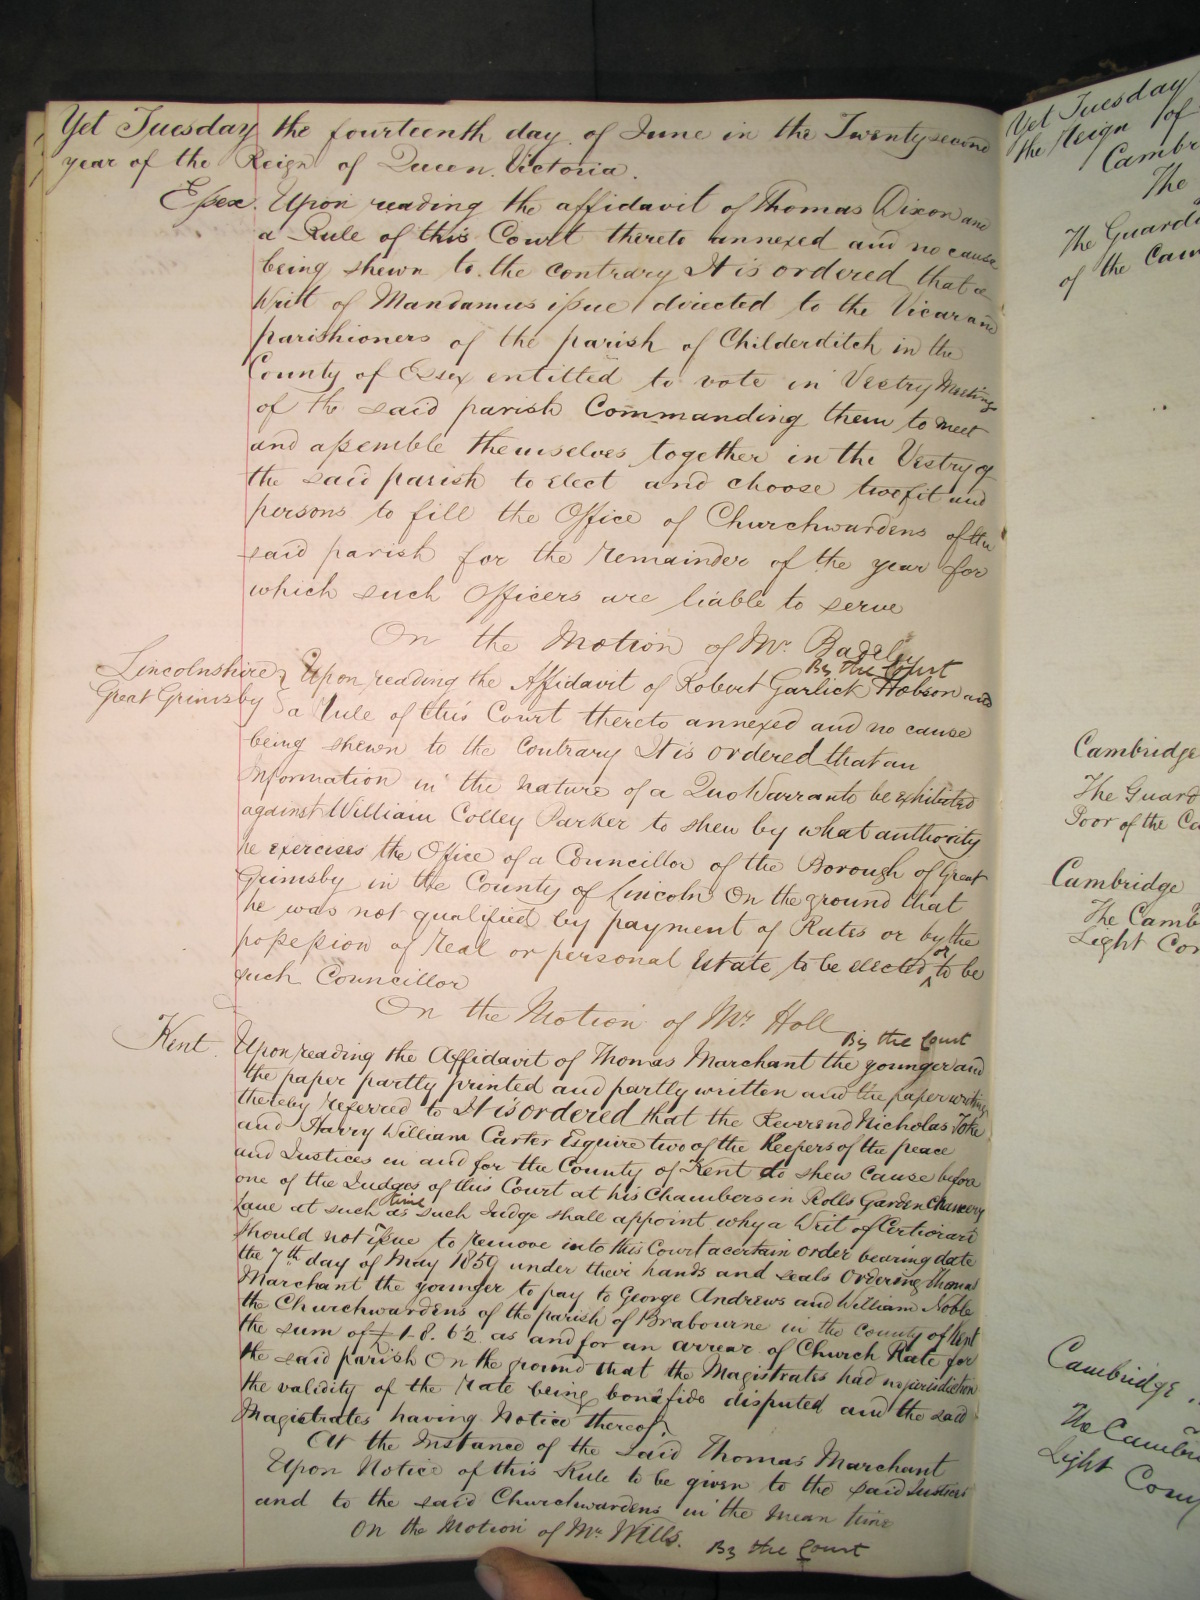 Yet Tuesday the fourteenth day of June in the Twenty second
year of the Reign of Queen Victoria.
Essex. Upon reading the affidavit of Thomas Dixon and
a Rule of this Court thereto annexed and no cause
being shewn to the contrary It is ordered that a
Writ of Mandamus issue directed to the Vicar and
parishioners of the parish of Childerditch in the
County of Essex entitled to vote in Vestry Meetings
of the said parish Commanding them to meet
and assemble themselves together in the Vestry of
the said parish to elect and choose two fit and
persons to fill the Office of Churchwardens of the
said parish for the remainder of the year for
which such Officers are liable to serve
On the Motion of Mr. Badeley
By the Court
Lincolnshire
Great Grimsby
Upon reading the Affidavit of Robert Garlick Hobson and
a Rule of this Court thereto annexed and no cause
being shewn to the Contrary It is ordered that an
Information in the nature of a Quo Warranto be exhibited
against William Colley Parker to shew by what authority
he exercises the Office of a Councillor of the Borough of Great
Grimsby in the County of Lincoln On the ground that
he was not qualified by payment of Rates or by the
possession of real or personal Estate to be elected or to be
such Councillor
On the Motion of Mr Holl
By the Court
Kent.
Upon reading the Affidavit of Thomas Marchant the younger and
the paper partly printed and partly written and the paper writing
thereby referred to It is ordered that the Reverend Nicholas Toke
and Harry William Carter Esquire two of the Keepers of the peace
and Justices in and for the County of Kent do shew cause before
one of the Judges of this Court at his Chambers in Rolls Garden Chancery
Lane at such time as such Judge shall appoint why a Writ of Certiorari
should not issue to remove into this Court a certain order bearing date
the 7th day of May 1859 under their hands and seals Ordering Thomas
Marchant the younger to pay to George Andrews and William Noble
the Churchwardens of the parish of Brabourne in the County of Kent
the sum of £1. 8. 6½ as and for an arrear of Church Rate for
the said parish On the ground that the Magistrates had no jurisdiction
the validity of the rate being bonâ fide disputed and the said
Magistrates having Notice thereof,
At the Instance of the said Thomas Marchant
Upon Notice of this Rule to be given to the said Justices
and to the said Churchwardens in the mean time
On the Motion of Mr. Wills.
By the Court
Yet Tuesday
the Reign of
The
The
of the
Cambridge
The
Poor of the
Cambridge
The
Light
Cambridge
The
Light